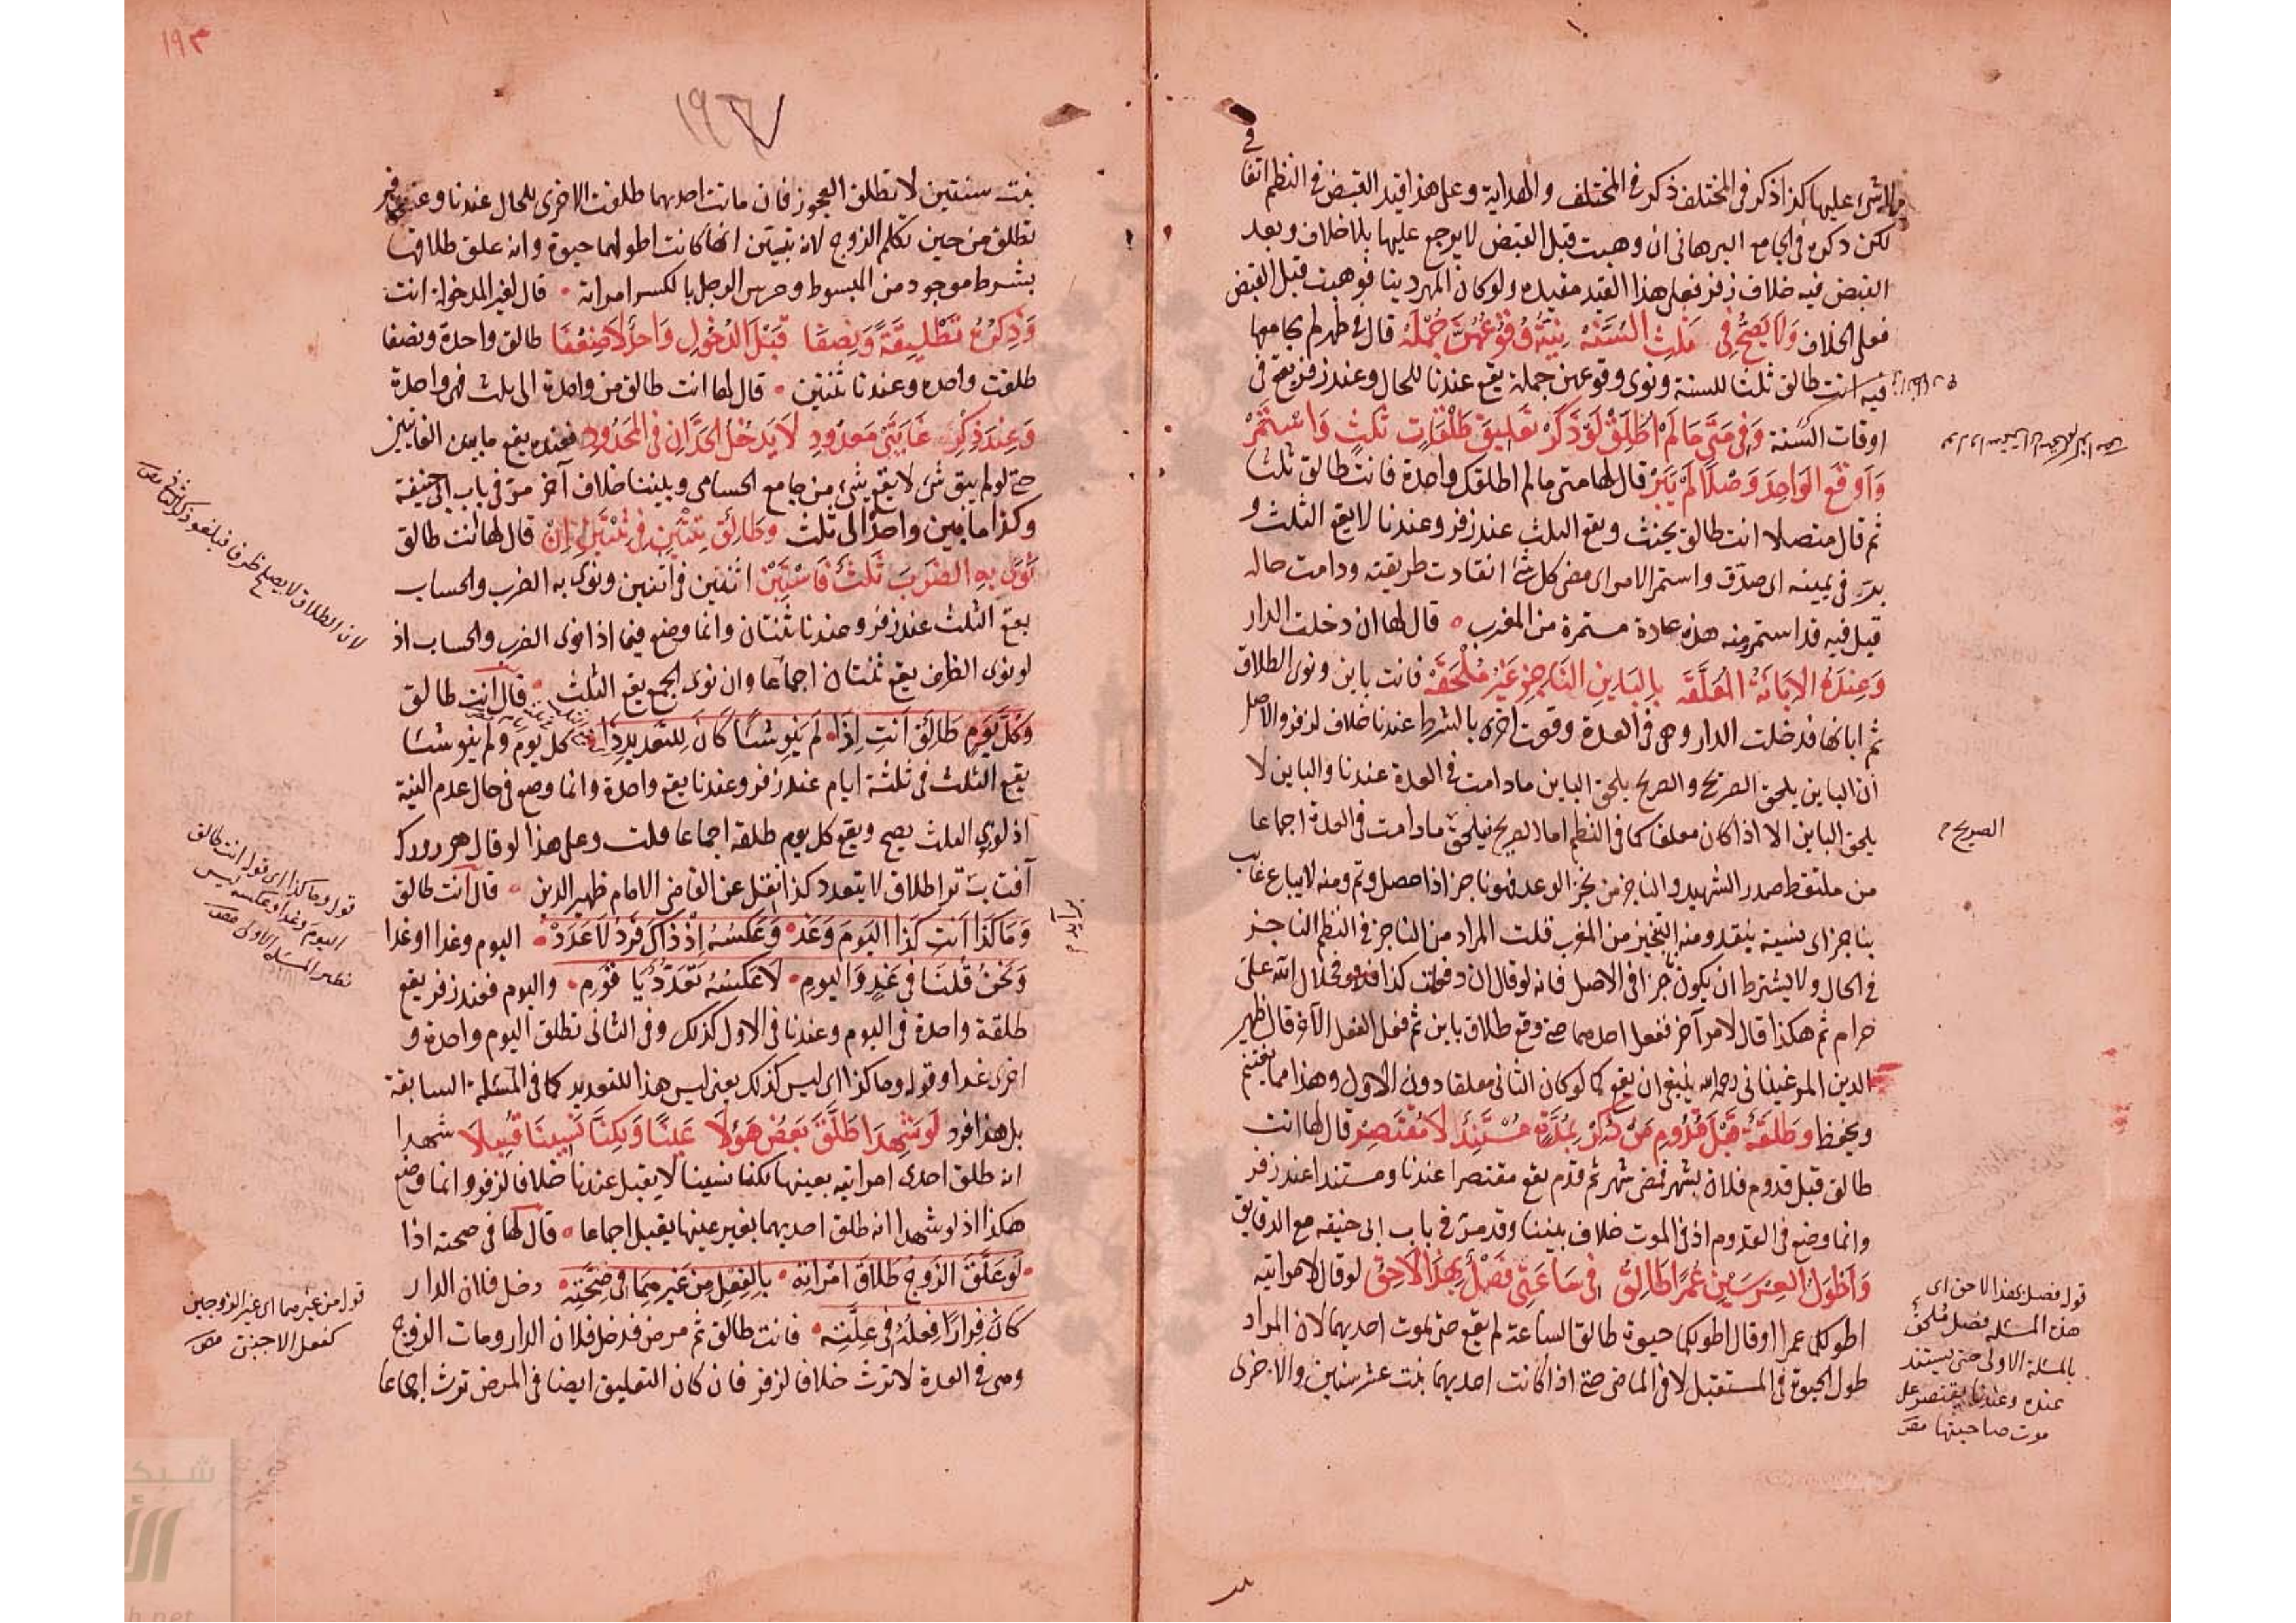 ولا شيء عليها كذا ذكر في المختلف ذكر في المختلف والهداية وعلى هذا قيد القبض في النظم اتفا
في
لكن ذكره في الجامع البرهاني ان وهبت قبل القبض لا يرجع عليها بلا خلاف وبعد
القبض فيه خلاف زفر فعلى هذا القيد مفيد ولو كان المهر دينا فوهبت قبل القبض
فعلى الخلاف وَلَا يَصِحُّ فِي ثَلْثِ السُّنَّةْ نِيَّةُ وُقُوعِهِنَّ جُمْلَهْ قال في طهر لم يجامعها
فيه انت طالق ثلثا للسنة ونوى وقوعهن جملة يقع عندنا للحال وعند زفر يقع في
اوقات السنة وَفِي مَتَى مَا لَمْ اُطَلِّقْ لَوْ ذَكَرْ تَعْلِيقَ طَلْقَاتٍ ثَلٰثٍ وَاسْتَمَرْ
وَاَوْقَعَ الْوَاحِدَ وَصْلًا لَمْ يَبَرْ قال لها متى ما لم اطلقك واحدة فانت طالق ثلثا
ثم قال متصلا انت طالق يحنث ويقع الثلث عند زفر وعندنا لا يقع الثلث و
بر في يمينه اى صدق واستمر الامر اى مضى كل شئ انقادت طريقته ودامت حاله
قيل فيه قد استمر ومنه هذه عادة مستمرة من المغرب قال لها ان دخلت الدار
وَعِنْدَهُ الْاِبَانَةُ الْمُعَلَّقَهْ بِالْبَايِنِ النَّاجِزِ غَيْرُ مُلْحَقَهْ فانت باين ونوى الطلاق
ثم ابانها فدخلت الدار وهى في العدة وقعت اخرى بالشرط عندنا خلاف لزفر والاصل
ان الباين يلحق الصريح والصريح يلحق الباين ما دامت في العدة عندنا والباين لا
يلحق الباين الا اذا كان معلقا كما في النظم اما الصريح فيلحق ما دامت في العدة اجماعا
الصريح م
من ملتقط صدر الشهيد والناجز من نجز الوعد فهو ناجز اذا حصل وتم ومنه لا يباع غايب
بناجز اى نسية بنقد ومنه التنجيز من المغرب قلت المراد من الناجز في النظم الناجز
في الحال ولا يشترط ان يكون ناجزا في الاصل فانه لو قال ان دخلت كذا فحلال الله على
حرام ثم هكذا قال لامر آخر ففعل احدهما حتى وقع طلاق باين ثم فعل الفعل الآخر قال ظهير
الدين المرغيناني رحمه الله ينبغى ان يقع كما لو كان الثانى معلقا دون الاول وهذا مما يغتنم
ويحفظ وَطَلْقَةٌ قَبْلَ قُدُومِ مَنْ ذُكِرْ بِمُدَّةٍ مُسْتَنِدٌ لَا مُقْتَصِرْ قال لها انت
طالق قبل قدوم فلان بشهر فمضى شهر ثم قدم يقع مقتصرا عندنا ومستندا عند زفر
وانما وضع في القدوم اذ في الموت خلاف بيننا وقد مر في باب ابى حنيفه مع الدقايق
وَاَطْوَلُ الْعِرْسَيْنِ عُمْرًا طَالِقُ فِي سَاعَتِي فَصْلٌ بِهٰذَا لَاحِقُ لو قال لامراتيه
اطولكما عمرا او قال اطولكما حيوة طالق الساعة لم يقع حتى تموت احديهما لان المراد
طول الحيوة في المستقبل لا في الماضى حتى اذا كانت احديهما بنت عشر سنين والاخرى
قوله فصل بهذا لاحق اى
هذه المسئلة فصل ملحق
بالمسئلة الاولى حتى يستند
عنده وعندنا يقتصر على
موت صاحبتها مص
١٩٣
١٩٦٧
بنت سنتين لا تطلق العجوز فان ماتت احديهما طلقت الاخرى للحال عندنا وعند زفر
تطلق من حين تكلم الزوج لانه تبين انها كانت اطولهما حيوة وانه علق طلاقها
بشرط موجود من المبسوط وعرس الرجل بالكسر امراته قال لغير المدخولة انت
وَذِكْرُهُ تَطْلِيقَةً وَنِصْفَا قَبْلَ الدُّخُولِ وَاحِدٌ لَا ضِعْفَا طالق واحدة ونصفا
طلقت واحده وعندنا ثنتين قال لها انت طالق من واحدة الى ثلث فهى واحدة
وَعِنْدَ ذِكْرِ غَايَتَيْ مَعْدُودِ لَا يَدْخُلُ الْحَدَّانِ فِي الْمَحْدُودِ فعنده يقع ما بين الغايتين
حتى لو لم يبق شئ لا يقع شئ من جامع الحسامى وبيننا خلاف آخر مر في باب ابى حنيفة
وكذا ما بين واحد الى ثلث وَطَالِقٌ ثِنْتَيْنِ فِي ثِنْتَيْنِ اِنْ قال لها انت طالق
نَوَى بِهِ الضَّرْبَ ثَلٰثٌ فَاسْتَبِنْ اثنتين في اثنتين ونوى به الضرب والحساب
يقع الثلث عند زفر وعندنا ثنتان وانما وضع فيما اذا نوى الضرب والحساب اذ
لو نوى الظرف يقع ثنتان اجماعا وان نوى الجمع يقع الثلث قال انت طالق
وَكُلَّ يَوْمٍ طَالِقٌ اَنْتِ اِذَا لَمْ يَنْوِ شَيْئًا كَانَ لِلتَّعْدِيدِ ذَا كل يوم ولم ينو شيئا
يقع الثلث في ثلثة ايام عند زفر وعندنا يقع واحدة وانما وضع في حال عدم النية
اذ لو نوى الثلث يصح ويقع كل يوم طلقة اجماعا قلت وعلى هذا لو قال هر روز كه
آفتاب برآيد ترا طلاق لا يتعدد كذا نقل عن القاضى الامام ظهير الدين قال انت طالق
وَمَا كَذَا اَنْتِ كَذَا الْيَوْمَ وَغَدْ وَعَكْسُهُ اِذْ ذَاكَ فَرْدٌ لَا عَدَدْ اليوم وغدا او غدا
وَنَحْنُ قُلْنَا فِي غَدٍ وَالْيَوْمِ لَا عَكْسِهِ تَعَدُّدٌ يَا قَوْمِ واليوم فعند زفر يقع
طلقة واحدة في اليوم وعندنا في الاول كذلك وفي الثانى تطلق اليوم واحدة و
اخرى غدا وقوله وما كذا اى ليس كذلك يعنى ليس هذا للتعديد كما في المسئلة السابقة
بل هذا فرد لَوْ شَهِدَا طَلَّقَ بَعْضَ هَؤُلَا عَيْنًا وَلٰكِنَّا نَسِينَا قُبِلَا شهدا
انه طلق احدى امراتيه بعينها لكنا نسينا لا يقبل عندنا خلافا لزفر وانما وضع
هكذا اذ لو شهدا انه طلق احديهما بغير عينها يقبل اجماعا قال لها في صحته اذا
لَوْ عَلَّقَ الزَّوْجُ طَلَاقَ امْرَاَتِهْ بِالْفِعْلِ مِنْ غَيْرِهِمَا فِي صِحَّتِهْ دخل فلان الدار
كَانَ فِرَارًا فِعْلُهُ فِي عِلَّتِهْ فانت طالق ثم مرض فدخل فلان الدار ومات الزوج
وهى في العدة لا ترث خلافا لزفر فان كان التعليق ايضا في المرض ترث اجماعا
لان الطلاق لا يصلح ظرفا فيلغو ذكر الثانى مص
قوله وما كذا اى قوله انت طالق
اليوم وغدا وعكسه ليس
نظير المسئلة الاولى مص
برآيد م
قوله من غيرهما اى غير الزوجين
كفعل الاجنبى مص